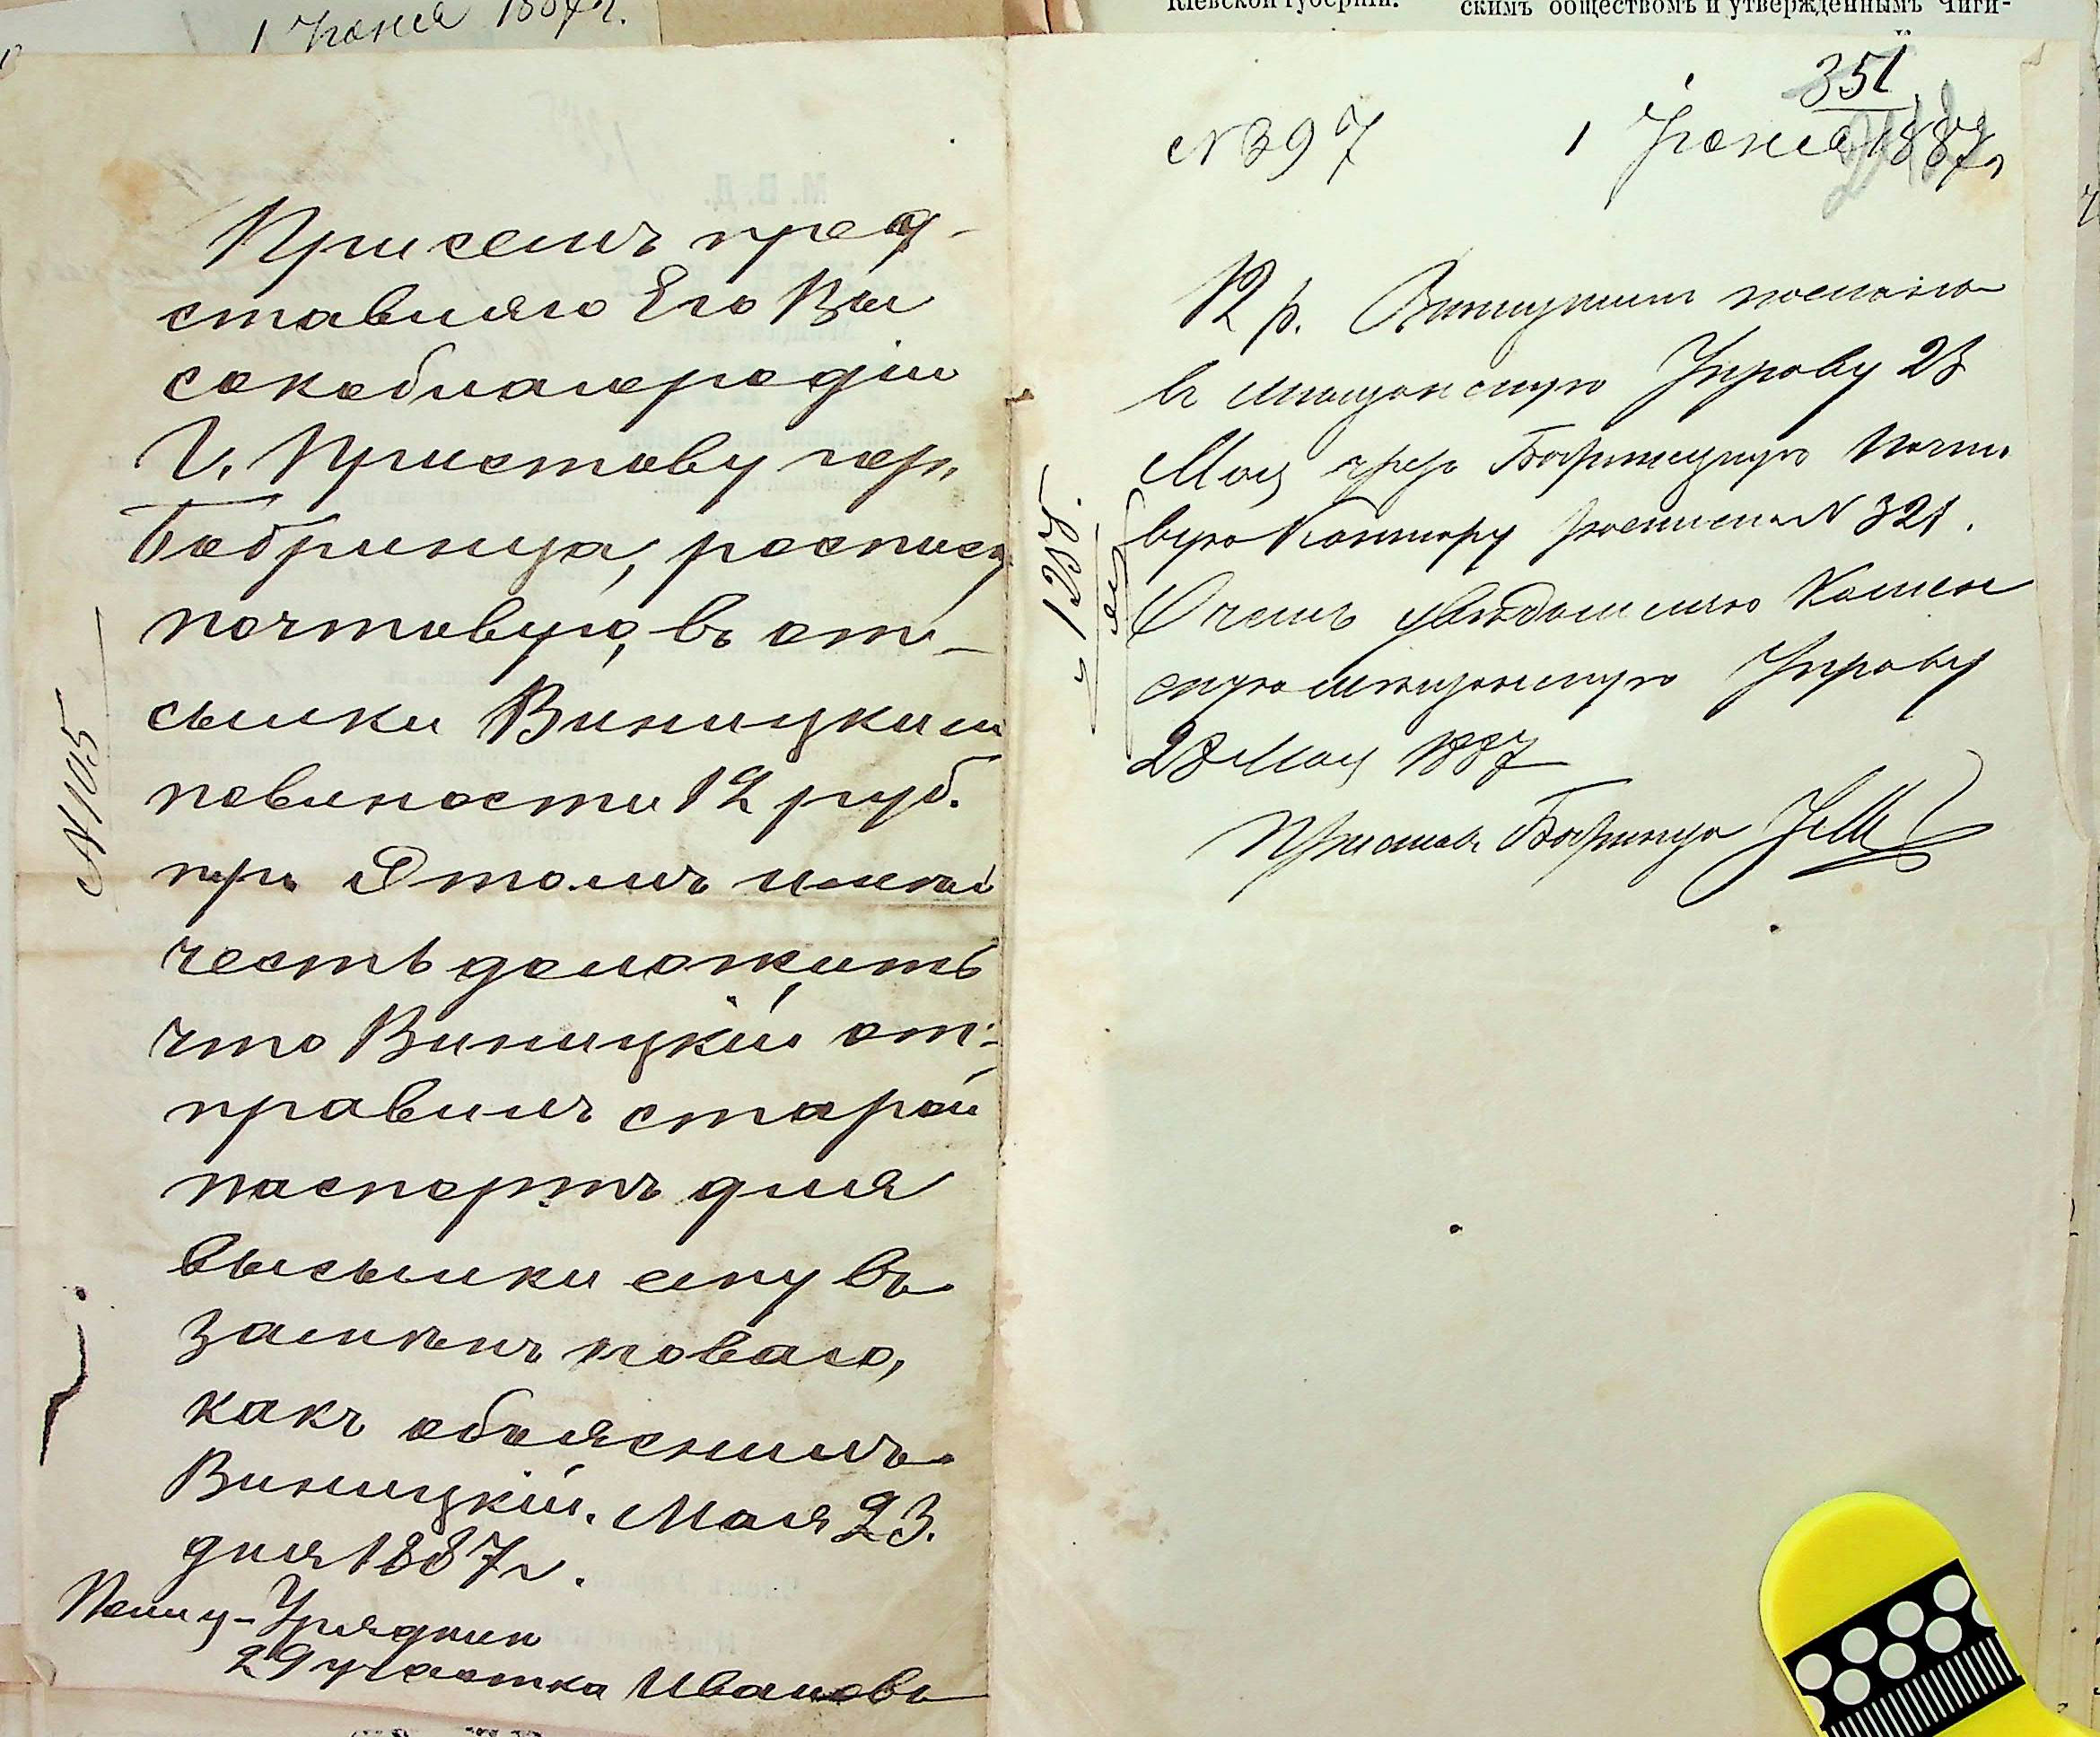 1 Іюня 1887 г.
Кіевской губерніи.
скимъ обществомъ и утвержденнымъ Чиги-
Присемъ пред-
ставляю Его Вы
сокоблагородію
Г. Приставу гор.
Бобринца, росписку
почтовую, въ от-
сылки Виницкимъ
повиности 12 руб.
при Этомъ имѣю
честь доложить,
что Виницкій от-
правилъ старой
паспортъ для
высылки ему въ
замѣнъ новаго,
какъ объяснилъ
Виницкій. Мая 23.
дня 1887 г.
Полиц-Урядник
29 участка Ивановъ
N 105
351
N 397 1 Іюня 1887 г
12 р. Виницкимъ посланы
въ мѣщанскую Управу 23
Мая чрез Бобринецкую Почто
вую Контору росписка N 321.
О чемъ увѣдомляю Камен
скую мѣщанскую Управу
28 Мая 1887
Приставъ Бобринца